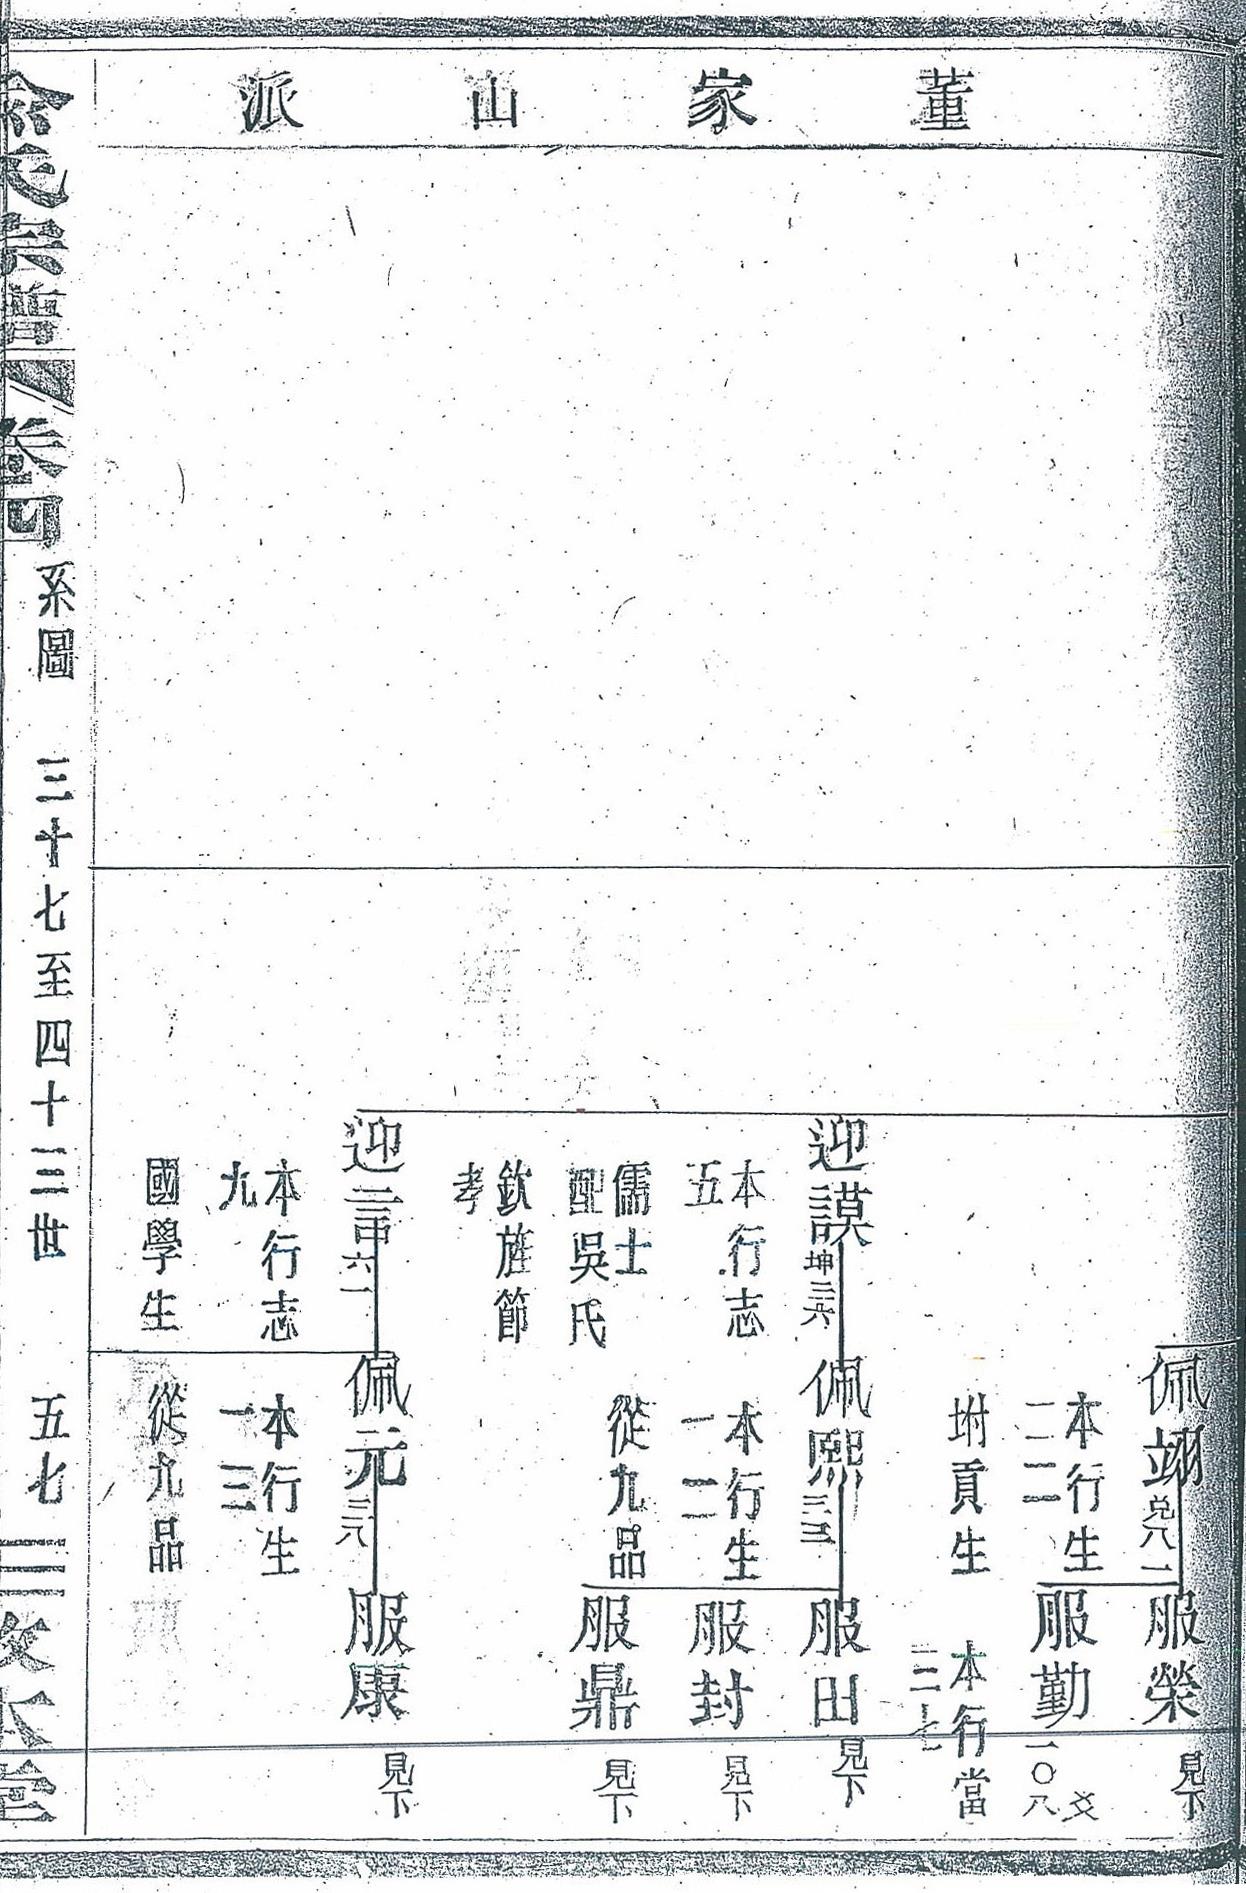 董家山派
佩翊
兌八一
本行生
二二二
坿貢生
服榮
見下
服勤
一〇八
爻
本行當
三七
迎謨
坤三六
本行志
五
儒士
配吳氏
欽旌節
孝
佩熙
三三
本行生
一二
從九品
服田
見下
服封
見下
服鼎
見下
迎
六一
本行志
九
國學生
佩元
三八
本行生
一三
從九品
服康
見下
氏宗譜 卷四 系圖 三十七至四十三世 五七 敦本堂